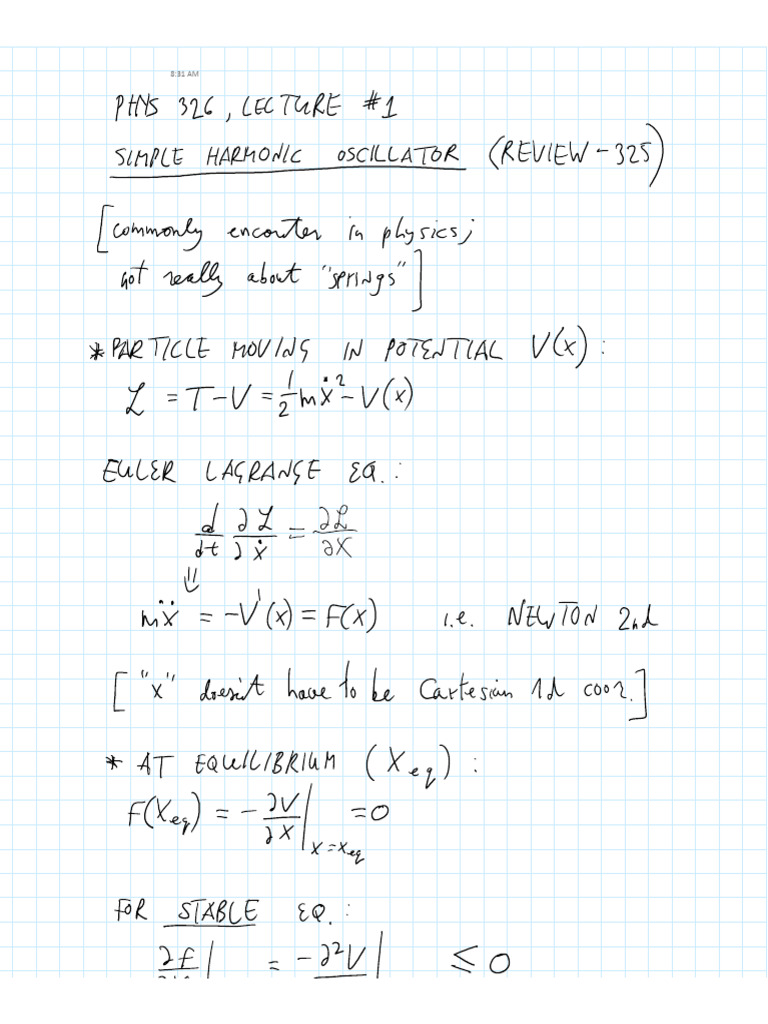 8:31 AM
PHYS 326, LECTURE #1
SIMPLE HARMONIC OSCILLATOR (REVIEW - 325)
[commonly encouter in physics;
not really about "springs"]
* PARTICLE MOVING IN POTENTIAL V(x):
ℒ = T - V = 1/2 mẋ² - V(x)
EULER LAGRANGE EQ.:
d/dt ∂ℒ/∂ẋ = ∂ℒ/∂x
⇓
mẍ = -V'(x) = F(x) i.e. NEWTON 2nd
["x" doesn't have to be Cartesian 1d coor.]
* AT EQUILIBRIUM (x_eq):
F(x_eq) = - ∂V/∂x |_{x=x_eq} = 0
FOR STABLE EQ.:
∂f | = -∂²V | ≤ 0